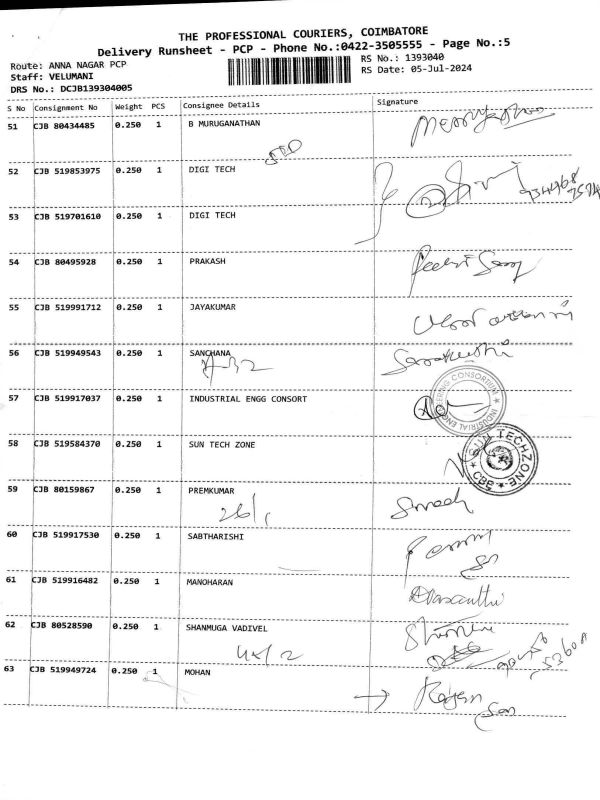 THE PROFESSIONAL COURIERS, COIMBATORE
Delivery Runsheet - PCP - Phone No.:0422-3505555 - Page No.:5
Route: ANNA NAGAR PCP
Staff: VELUMANI
DRS No.: DCJB139304005
RS No.: 1393040
RS Date: 05-Jul-2024
S No Consignment No Weight PCS Consignee Details Signature
51 CJB 80434485 0.250 1 B MURUGANATHAN
52 CJB 519853975 0.250 1 DIGI TECH
53 CJB 519701610 0.250 1 DIGI TECH
54 CJB 80495928 0.250 1 PRAKASH
55 CJB 519991712 0.250 1 JAYAKUMAR
56 CJB 519949543 0.250 1 SANCHANA
57 CJB 519917037 0.250 1 INDUSTRIAL ENGG CONSORT
58 CJB 519584370 0.250 1 SUN TECH ZONE
SUN TECHZONE CBE
59 CJB 80159867 0.250 1 PREMKUMAR
60 CJB 519917530 0.250 1 SABTHARISHI
61 CJB 519916482 0.250 1 MANOHARAN
Vasanthi
62 CJB 80528590 0.250 1 SHANMUGA VADIVEL
63 CJB 519949724 0.250 1 MOHAN
Son